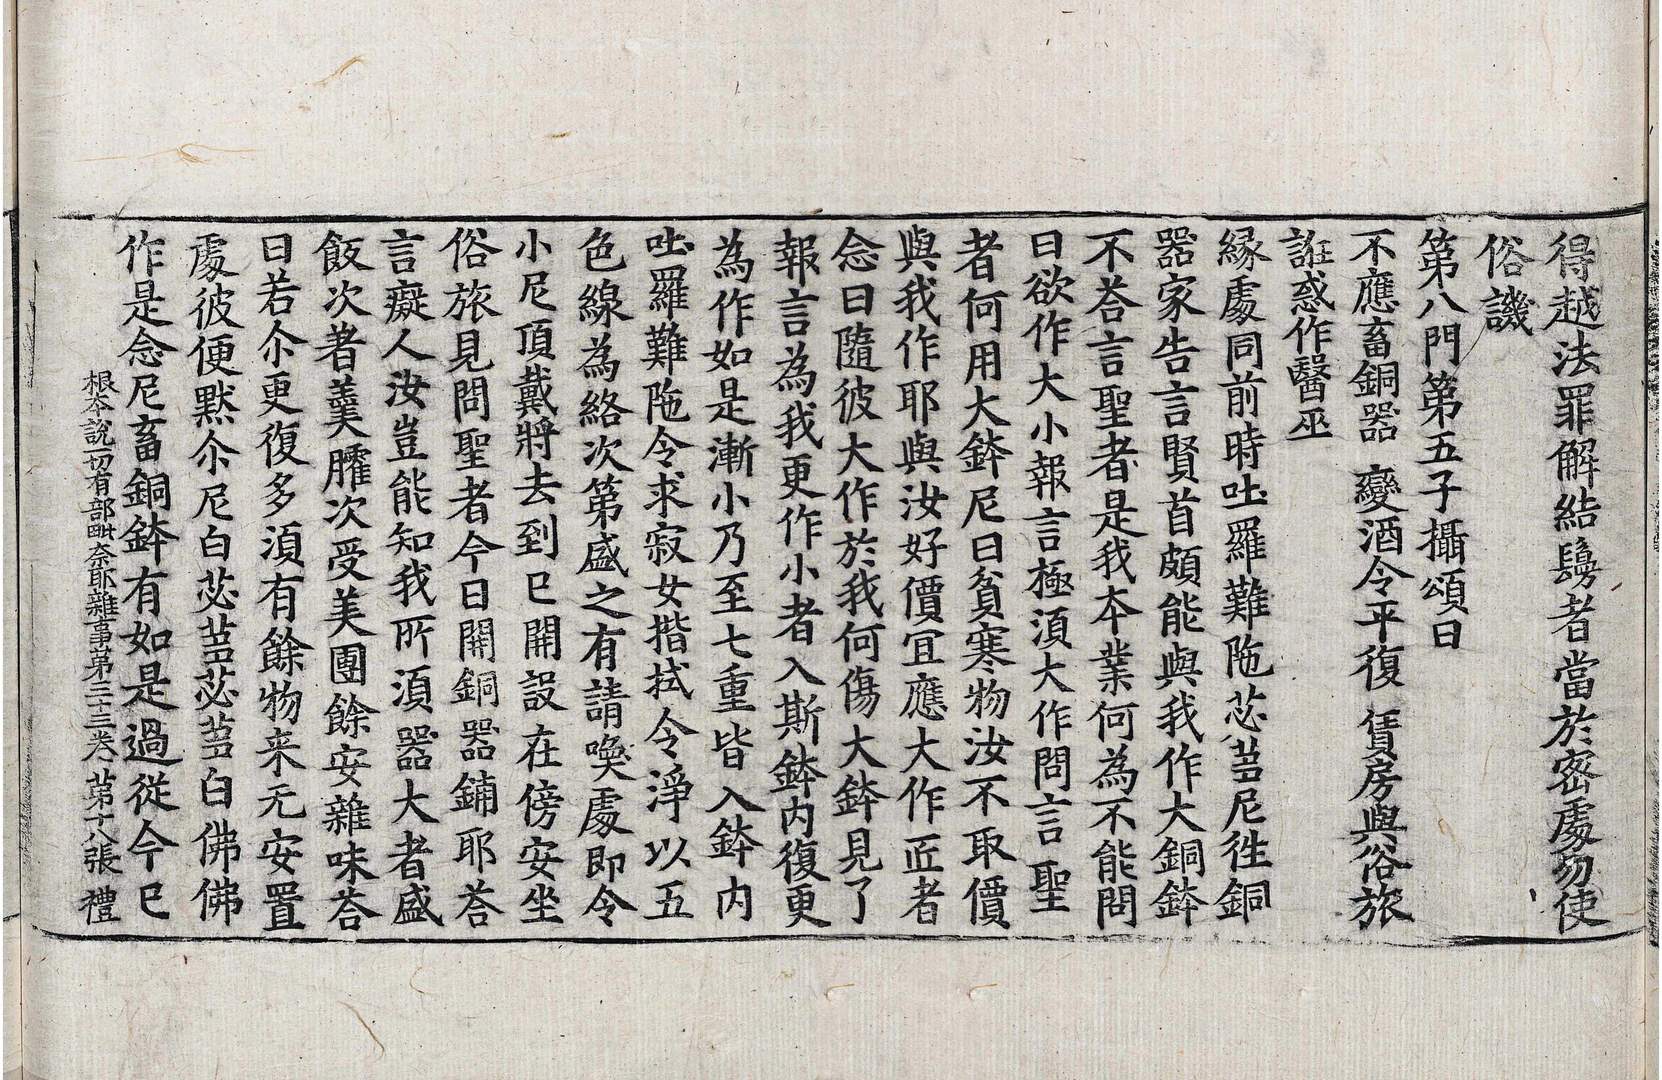 得越法罪解結鬘者當於密處勿使
俗譏
第八門第五子攝頌曰
不應畜銅器　變酒令平復　賃房與俗旅
誑惑作醫巫
縁處同前時吐羅難陁苾芻尼徃銅
器家告言賢首頗能與我作大銅鉢
不荅言聖者是我本業何為不能問
曰欲作大小報言極湏大作問言聖
者何用大鉢尼曰貧寒物汝不取價
與我作耶與汝好價宜應大作匠者
念曰隨彼大作於我何傷大鉢見了
報言為我更作小者入斯鉢内復更
為作如是漸小乃至七重皆入鉢内
吐羅難陁令求寂女揩拭令淨以五
色線為絡次第盛之有請喚處即令
小尼頂戴將去到已開設在傍安坐
俗旅見問聖者今日開銅器鋪耶荅
言癡人汝豈能知我所湏器大者盛
飯次著羹臛次受美團餘安雜味荅
曰若尒更復多湏有餘物来无安置
處彼便黙尒尼白苾芻苾芻白佛佛
作是念尼畜銅鉢有如是過從今已
根本說一切有部毗奈耶雜事第三十三卷　第十八張　禮